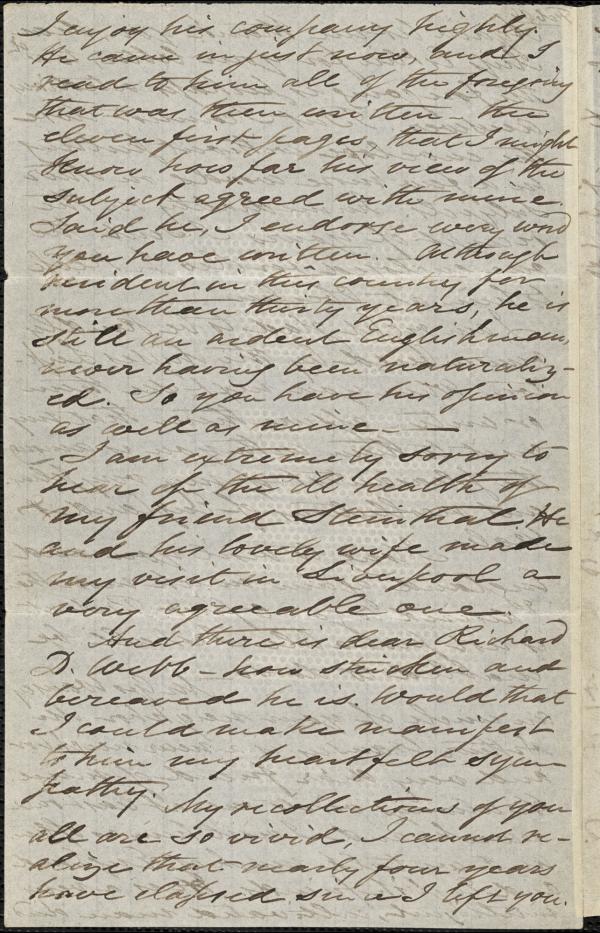 I enjoy his company highly.
He came in just now, and I
read to him all of the foregoing
that was then written – the
eleven first pages, that I might
know how far his view of the
subject agreed with mine.
Said he, I endorse every word
you have written. Although
resident in this country for
more than thirty years, he is
still an ardent Englishman,
never having been naturaliz-
ed. So you have his opinion
as well as mine. —
I am extremely sorry to
hear of the ill health of
my friend Steinthal. He
and his lovely wife made
my visit in Liverpool a
very agreeable one.
And there is dear Richard
D. Webb – how stricken and
bereaved he is. Would that
I could make manifest
to him my heartfelt sym-
pathy. My recollections of you
all are so vivid, I cannot re-
alize that nearly four years
have elapsed since I left you.